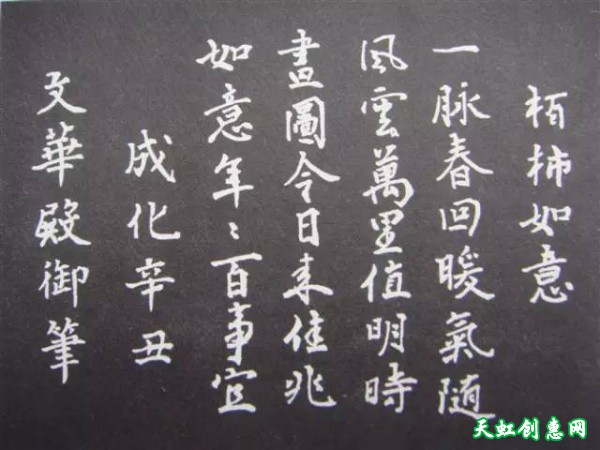 栢柿如意
一脉春回暖氣隨
風雲萬里值明時
畫圖今日来佳兆
如意年〻百事宜
成化辛丑
文華殿御筆
天虹创惠网